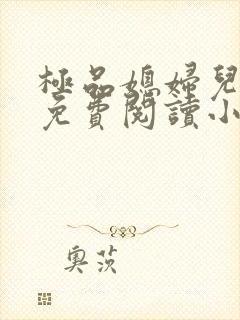 極品媳婦兒
免費閱讀小
奧茨